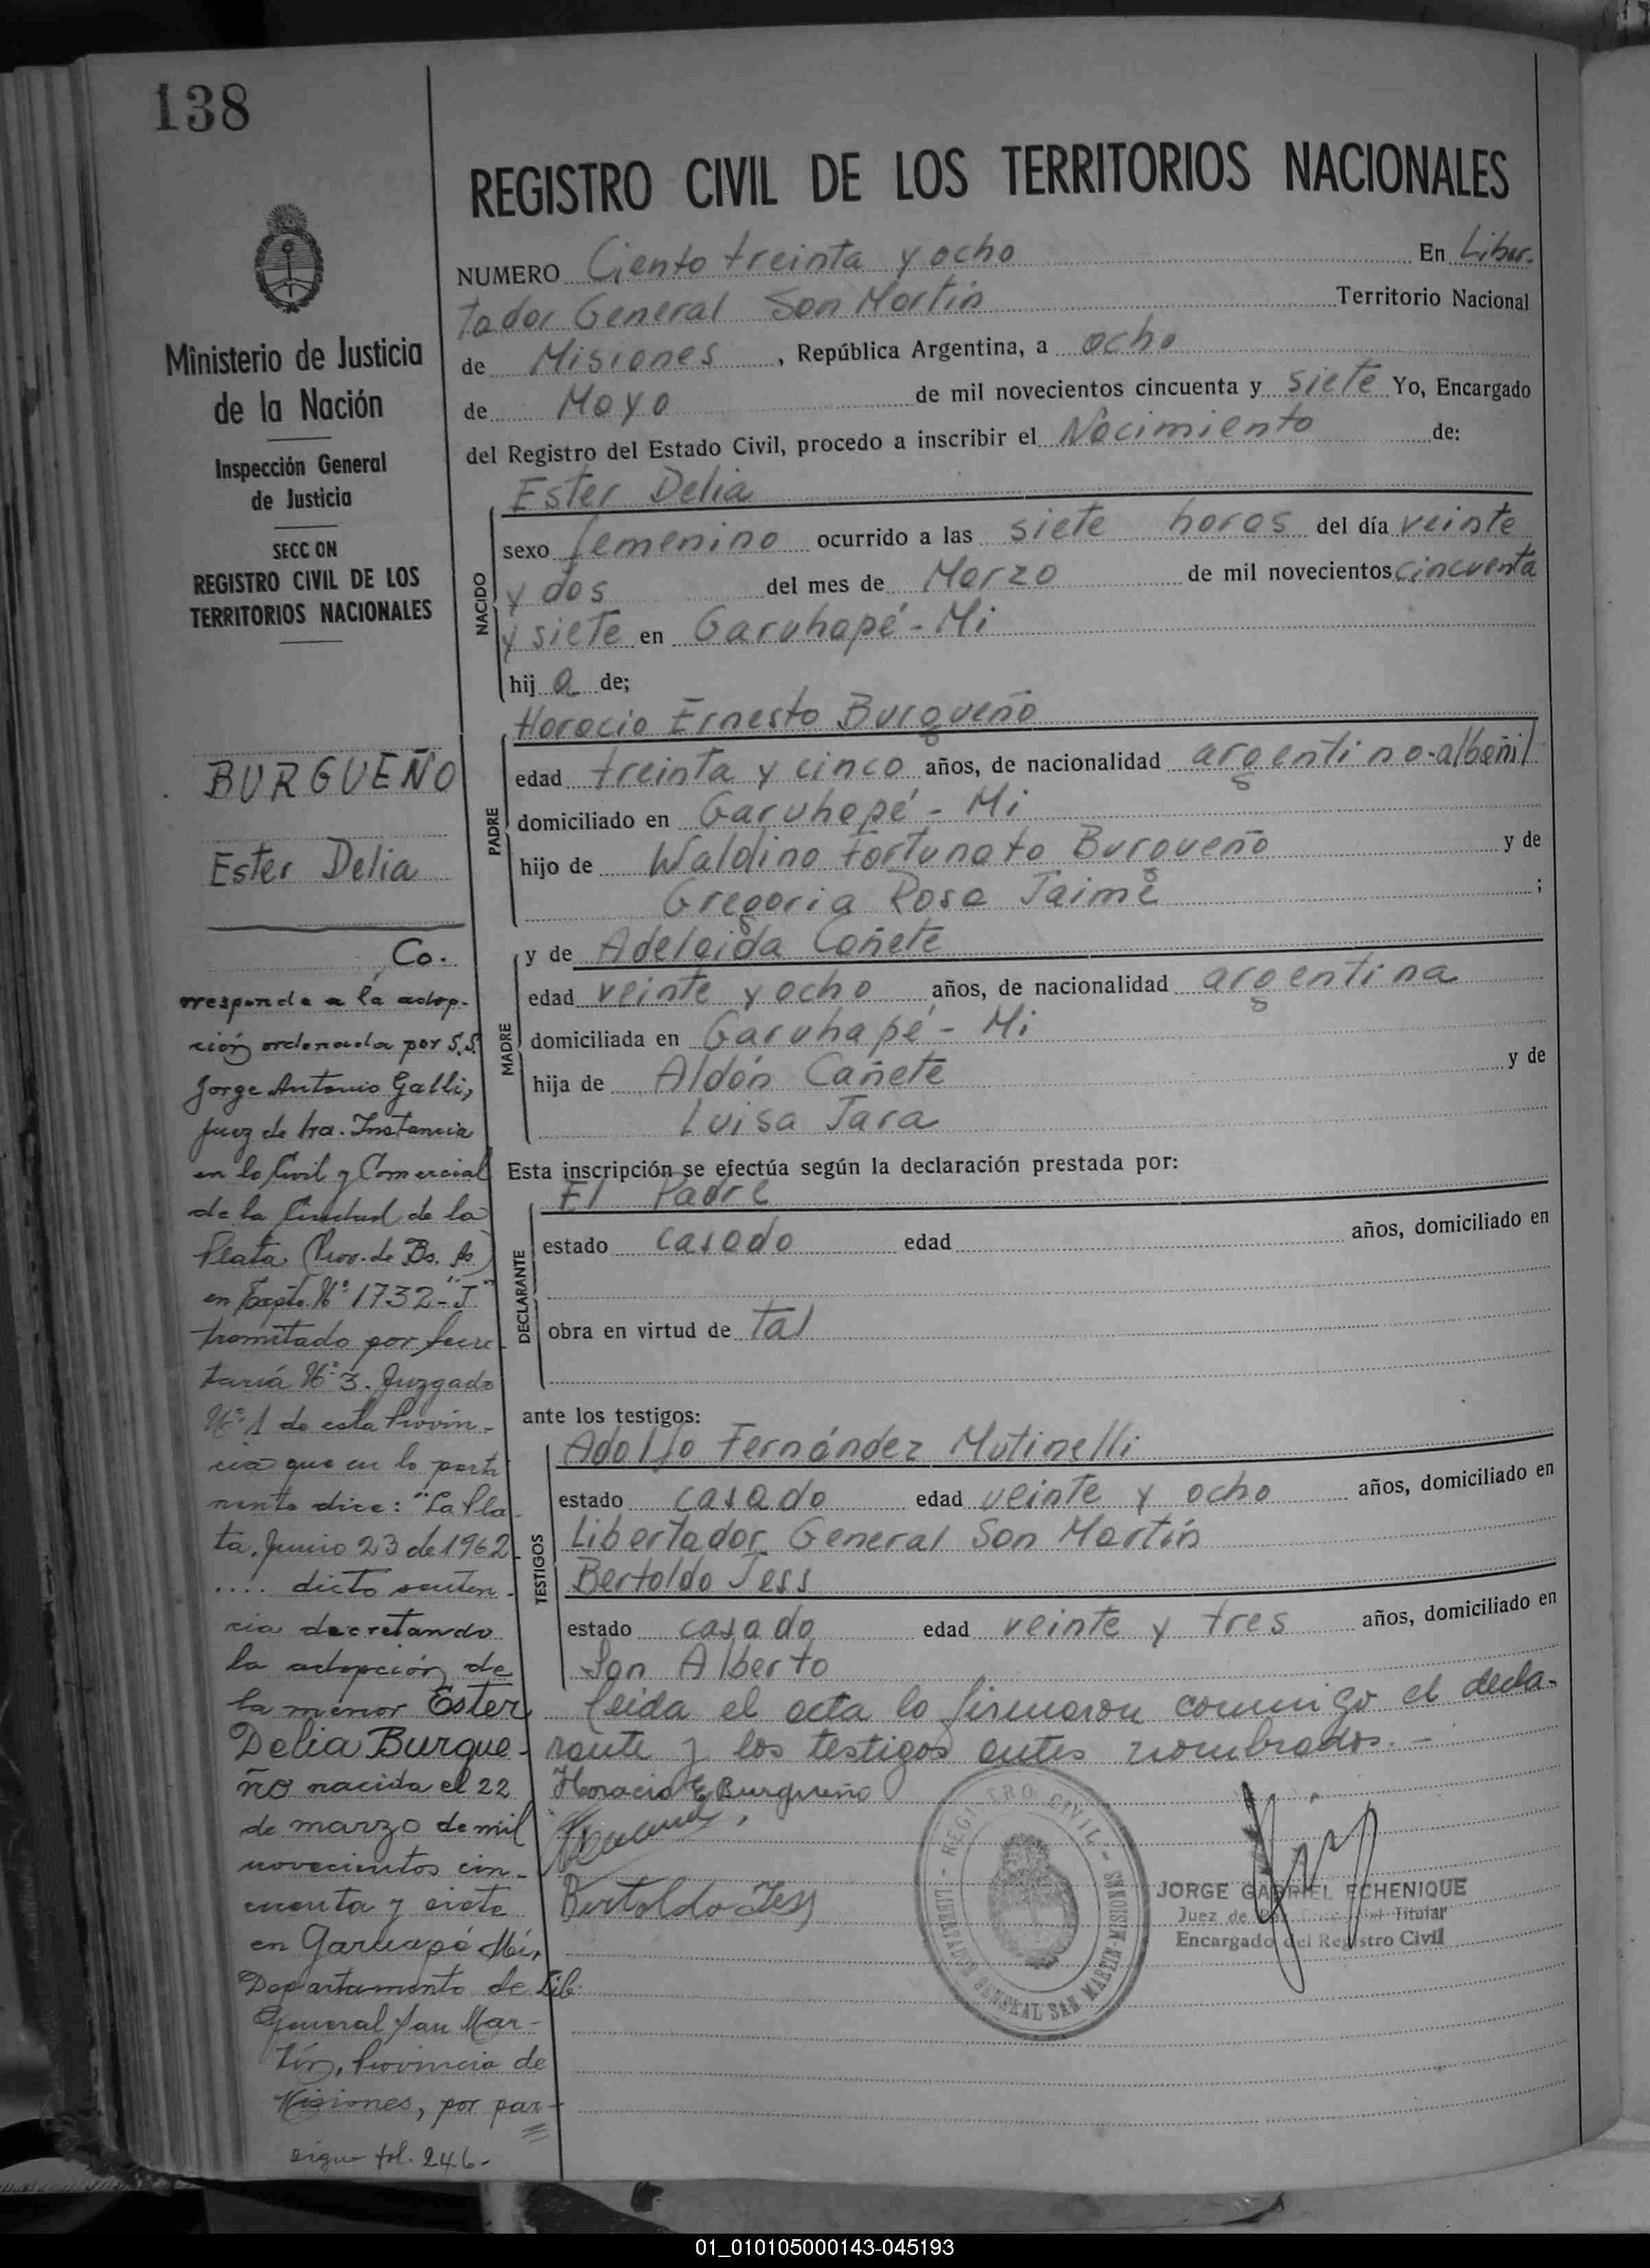 138
Ministerio de Justicia
de la Nación
Inspección General
de Justicia
SECC ON
REGISTRO CIVIL DE LOS
TERRITORIOS NACIONALES
BURGUEÑO
Ester Delia
Co-
rresponde a la adop-
ción ordenada por S.S.
Jorge Antonio Galli,
Juez de 1ra. Instancia
en lo Civil y Comercial
de la Ciudad de la
Plata (Prov. de Bs. As)
en Expte. Nº 1732-"J"
tramitado por Secre-
taría Nº 3. Juzgado
Nº 1 de esta Provin-
cia que en lo perti
nente dice: "La Pla-
ta, Junio 23 de 1962
.... dicto senten-
cia decretando
la adopción de
la menor Ester
Delia Burgue-
ño nacida el 22
de marzo de mil
novecientos cin-
cuenta y siete
en Garuapé Mí,
Departamento de Lib.
General San Mar-
tín, Provincia de
Misiones, por par-
sigue fol. 246.-
REGISTRO CIVIL DE LOS TERRITORIOS NACIONALES
NUMERO Ciento treinta y ocho En Liber-
tador General San Martín Territorio Nacional
de Misiones, República Argentina, a ocho
de Mayo de mil novecientos cincuenta y siete Yo, Encargado
del Registro del Estado Civil, procedo a inscribir el Nacimiento de:
NACIDO
Ester Delia
sexo femenino ocurrido a las siete horas del día veinte
y dos del mes de Marzo de mil novecientos cincuenta
y siete en Garuhapé - Mi
hij a de;
PADRE
Horacio Ernesto Burgueño
edad treinta y cinco años, de nacionalidad argentino-albañil
domiciliado en Garuhapé - Mi
hijo de Waldino Fortunato Burgueño y de
Gregoria Rosa Jaime ;
MADRE
y de Adelaida Cañete
edad veinte y ocho años, de nacionalidad argentina
domiciliada en Garuhapé - Mi
hija de Aldón Cañete y de
Luisa Jara
Esta inscripción se efectúa según la declaración prestada por:
DECLARANTE
El Padre
estado casado edad años, domiciliado en
obra en virtud de tal
ante los testigos:
TESTIGOS
Adolfo Fernández Mutinelli
estado casado edad veinte y ocho años, domiciliado en
Libertador General San Martín
Bertoldo Jess
estado casado edad veinte y tres años, domiciliado en
San Alberto
Leida el acta la firmaron conmigo el decla-
rante y los testigos antes nombrados.-
Horacio E Burgueño
Bertoldo Jess
- REGISTRO CIVIL -
LIBERTADOR GENERAL SAN MARTIN-MISIONES
JORGE GABRIEL ECHENIQUE
Juez de Paz Titular
Encargado del Registro Civil
01_010105000143-045193